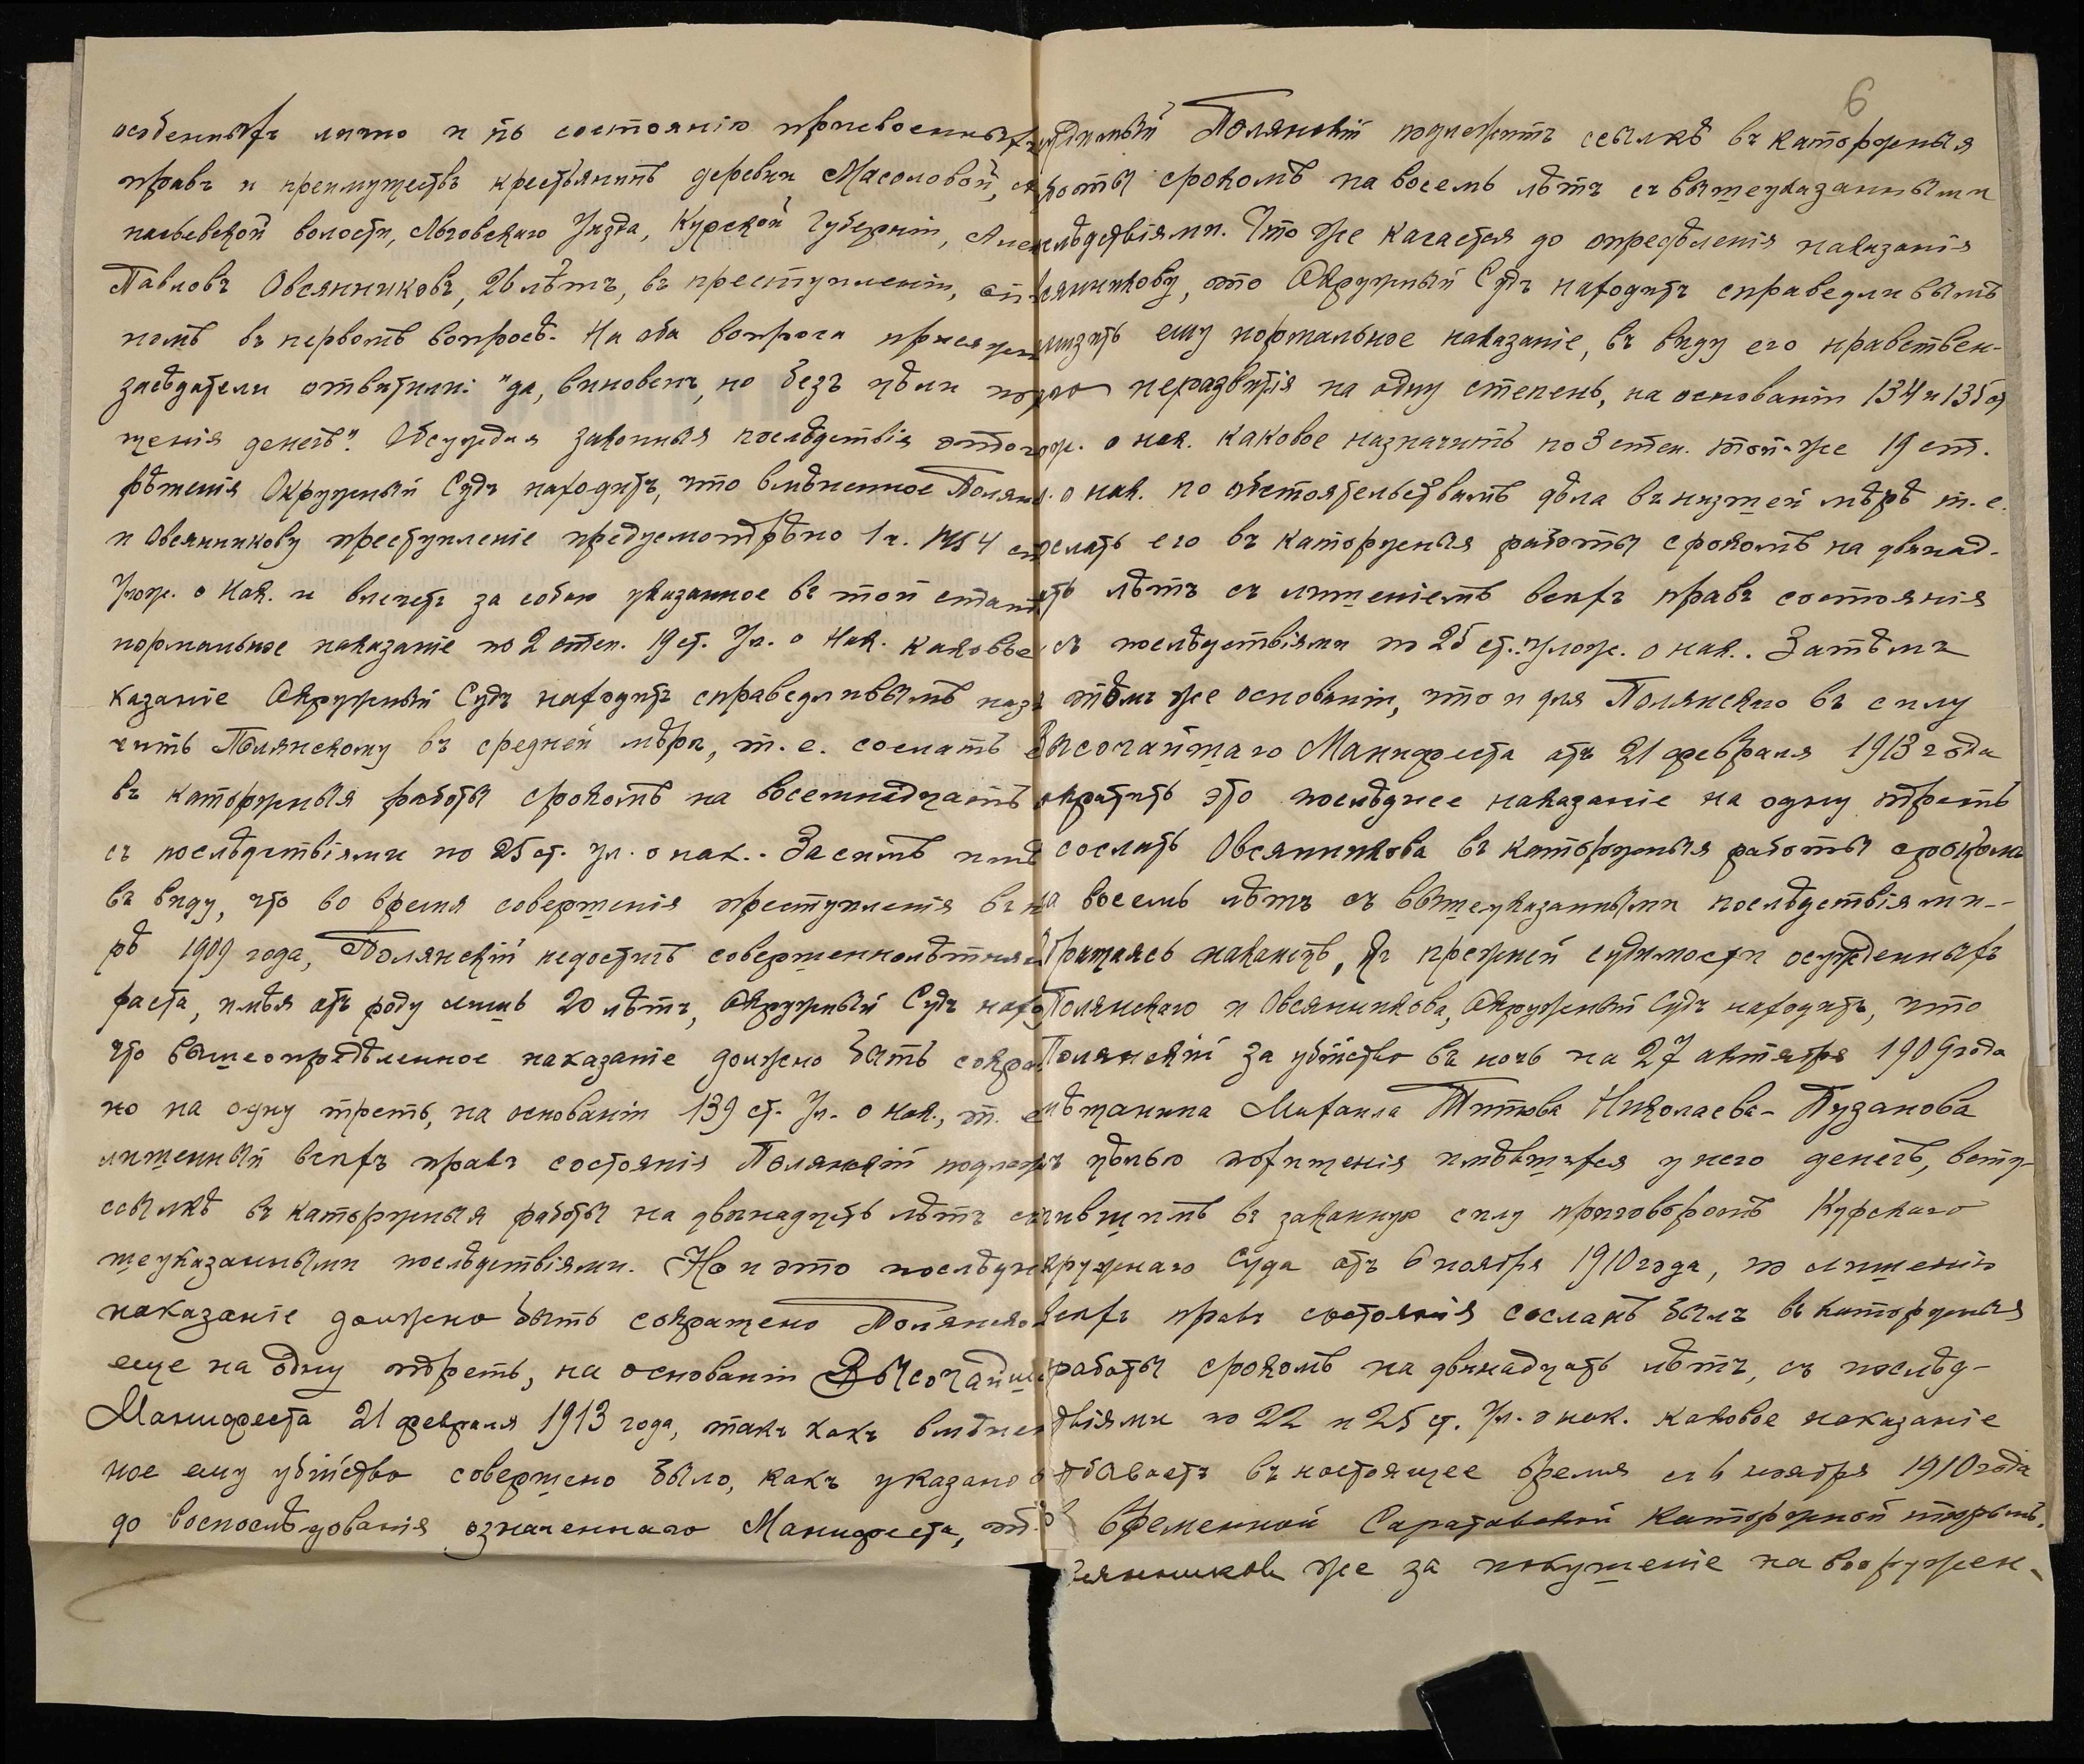 особенныхъ лично и по состоянію присвоенныхъ
правъ и преимуществъ крестьянинъ деревни Масоловой,
насьевской волости, Льговскаго Уѣзда, Курской Губерніи,
Павловъ Овсянниковъ, 26 лѣтъ, въ преступленіи,
номъ въ первомъ вопросѣ. На оба вопроса присяж
засѣдатели отвѣтили: "да, виновенъ, но безъ цѣли по
щенія денегъ". Обсуждая законныя послѣдствія этого
рѣшенія Окружный Судъ находитъ, что вмѣненное Полянс
и Овсянникову преступленіе предусмотрѣно 1 ч. 1454 ст
Улож. о Нак. и влечетъ за собою указанное въ той стать
нормальное наказаніе по 2 степ. 19 ст. Ул. о Нак. каковое
казаніе Окружный Судъ находитъ справедливымъ наз
чить Полянскому въ средней мѣрѣ, т. е. сослать
въ каторжныя работы срокомъ на восемнадцать
съ послѣдствіями по 25 ст. Ул. о нак.. Засимъ имѣ
въ виду, что во время совершенія преступленія въ
рѣ 1909 года, Полянскій недостигъ совершеннолѣтня
раста, имѣя отъ роду лишь 20 лѣтъ, Окружный Судъ нахо
что вышеопредѣленное наказаніе должно быть сокра
но на одну треть, на основаніи 139 ст. Ул. о нак., т. е
лишенный всѣхъ правъ состоянія Полянскій подлежи
ссылкѣ въ каторжныя работы на двѣнадцать лѣтъ съ
шеуказанными послѣдствіями. Но и это послѣдн
наказаніе должно быть сокращено Полянско
еще на одну треть, на основаніи Высочайше
Манифеста 21 февраля 1913 года, такъ какъ вмѣнен
ное ему убійство совершено было, какъ указано
до воспослѣдованія означеннаго Манифеста, т.
6
удимый Полянскій подлежитъ ссылкѣ въ каторжныя
боты срокомъ на восемь лѣтъ съ вышеуказанными
слѣдствіями. Что же касается до опредѣленія наказанія
сянникову, то Окружный Судъ находитъ справедливымъ
низить ему нормальное наказаніе, въ виду его нравствен-
го неразвитія на одну степень, на основаніи 134 и 135 ст
ож. о нак. каковое назначить по 3 степ. той-же 19 ст.
о нак. по обстоятельствамъ дѣла въ низшей мѣрѣ т. е.
слать его въ каторжныя работы срокомъ на двѣнад-
ть лѣтъ съ лишеніемъ всѣхъ правъ состоянія
съ послѣдствіями по 25 ст. Улож. о нак.. Затѣмъ
томъ же основаніи, что и для Полянскаго въ силу
Высочайшаго Манифеста отъ 21 февраля 1913 года
ократить это послѣднее наказаніе на одну треть
сослать Овсянникова въ каторжныя работы срокомъ
на восемь лѣтъ съ вышеуказанными послѣдствіями.-
бращаясь наконецъ, къ прежней судимости осужденныхъ
Полянскаго и Овсянникова, Окружный Судъ находитъ, что
Полянскій за убійство въ ночь на 27 октября 1909 года
мѣщанина Михаила Титова Николаева-Пузанова
съ цѣлью похищенія имѣвшихся у него денегъ, всту-
пившимъ въ законную силу приговоромъ Курскаго
кружнаго Суда отъ 6 ноября 1910 года, по лишеніи
всѣхъ правъ состоянія сосланъ былъ въ каторжныя
работы срокомъ на двѣнадцать лѣтъ, съ послѣд-
твіями по 22 и 25 ст. Ул. о нак. каковое наказаніе
тбываетъ въ настоящее время съ 6 ноября 1910 года
въ временной Саратовской каторжной тюрьмѣ,
сянниковъ же за покушеніе на вооружен-